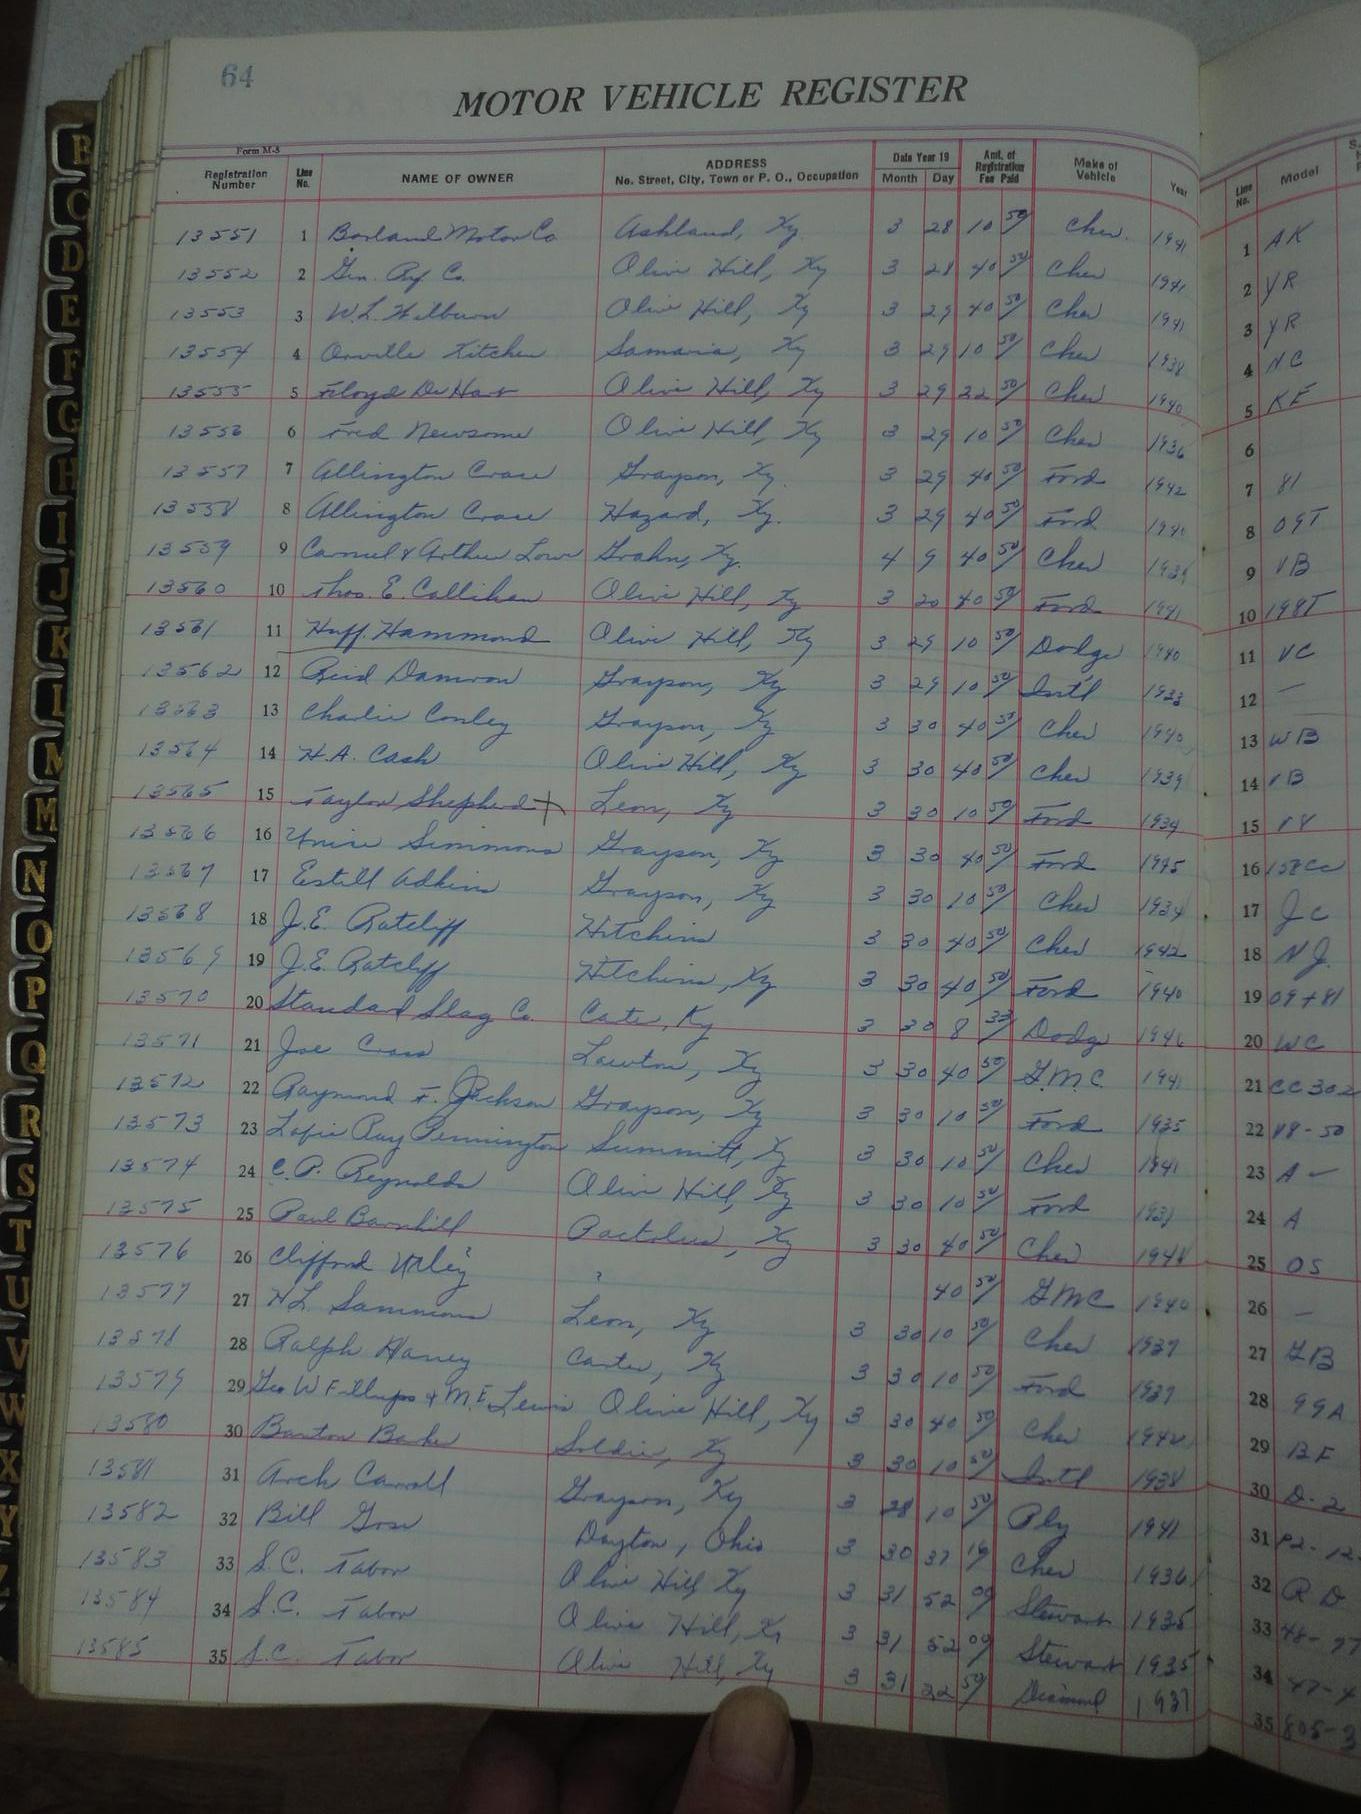 64
MOTOR VEHICLE REGISTER
Form M-8
Registration Number Line No. NAME OF OWNER ADDRESS No. Street, City, Town or P. O., Occupation Date Year 19 Month Day Amt. of Registration Fee Paid Make of Vehicle Year Line No. Model
13551 1 Borland Motor Co Ashland, Ky. 3 28 10 50 Chev. 1941 1 AK
13552 2 Gen. Ref. Co. Olive Hill, Ky 3 28 40 50 Chev 1941 2 YR
13553 3 W.L. Wilburn Olive Hill, Ky 3 29 40 50 Chev 1941 3 YR
13554 4 Orville Kitchen Samaria, Ky 3 29 10 50 Chev 1938 4 NC
13555 5 Floyd DeHart Olive Hill, Ky 3 29 22 50 Chev 1940 5 KF
13556 6 Fred Newsome Olive Hill, Ky 3 29 10 50 Chev 1936 6
13557 7 Allington Crace Grayson, Ky. 3 29 40 50 Ford 1942 7 81
13558 8 Allington Crace Hazard, Ky. 3 29 40 50 Ford 1940 8 09T
13559 9 Carmel & Arthur Lowe Grahn, Ky. 4 9 40 50 Chev 1939 9 VB
13560 10 Thos. E. Callihan Olive Hill, Ky 3 20 40 50 Ford 1941 10 198T
13561 11 Huff. Hammond Olive Hill, Ky 3 29 10 50 Dodge 1940 11 VC
13562 12 Reid Damron Grayson, Ky 3 29 10 50 Int'l 1933 12 —
13563 13 Charlie Conley Grayson, Ky 3 30 40 50 Chev 1940 13 WB
13564 14 H.A. Cash Olive Hill, Ky 3 30 40 50 Chev 1939 14 VB
13565 15 Taylor Shepherd + Leon, Ky 3 30 10 50 Ford 1934 15 V8
13566 16 Simmons Grayson, Ky 3 30 40 50 Ford 1945 16 158CC
13567 17 Estill Adkins Grayson, Ky 3 30 10 50 Chev 1934 17 JC
13568 18 J.E. Ratcliff Hitchins 3 30 40 50 Chev 1942 18 NJ.
13569 19 J.E. Ratcliff Hitchins, Ky 3 30 40 50 Ford 1940 19 09+81
13570 20 Standard Slag Co. Carter, Ky 3 30 8 33 Dodge 1946 20 WC
13571 21 Joe Crass Lawton, Ky 3 30 40 50 G.M.C. 1941 21 CC 302
13572 22 Raymond F. Jackson Grayson, Ky 3 30 10 50 Ford 1935 22 V8-50
13573 23 Ray Pennington Summitt, Ky 3 30 10 50 Chev 1941 23 A –
13574 24 C.P. Reynolds Olive Hill, Ky 3 30 10 50 Ford 1931 24 A
13575 25 Paul Barnhill Pactolus, Ky 3 30 40 50 Chev 1941 25 OS
13576 26 Clifford Utley ? 40 50 GMC 1940 26 —
13577 27 H.L. Sammons Leon, Ky 3 30 10 50 Chev 1937 27 GB
13578 28 Ralph Haney Carter, Ky 3 30 10 50 Ford 1937 28 99A
13579 29 Geo W Fillups & M.E. Lewis Olive Hill, Ky 3 30 40 50 Chev 1940 29 BF
13580 30 Banton Barker Soldier, Ky 3 30 10 50 Intl 1938 30 D-2
13581 31 Arch Carroll Grayson, Ky 3 28 10 50 Ply 1941 31 P2-12
13582 32 Bill Gose Dayton, Ohio 3 30 37 19 Chev 1936 32 RD
13583 33 S.C. Tabor Olive Hill Ky 3 31 52 00 Stewart 1935 33 48-97
13584 34 S.C. Tabor Olive Hill, Ky 3 31 52 00 Stewart 1935 34 47-4
13585 35 S.C. Tabor Olive Hill, Ky 3 31 22 50 Diamond 1937 35 805-3
E
C
D
E
F
G
H
I
J
K
L
M
M
N
O
P
Q
R
S
T
U
V
W
X
Y
Z